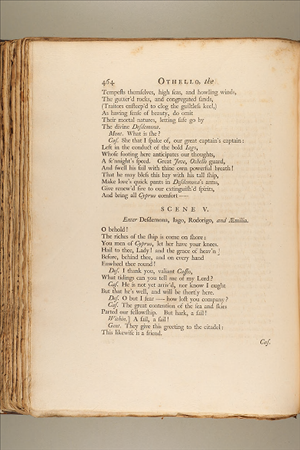 464 OTHELLO, the
Tempests themselves, high seas, and howling winds,
The gutter'd rocks, and congregated sands,
(Traitors ensteep'd to clog the guiltless keel,)
As having sense of beauty, do omit
Their mortal natures, letting safe go by
The divine Desdemona.
Mont. What is she?
Cas. She that I spake of, our great captain's captain:
Left in the conduct of the bold Iago,
Whose footing here anticipates our thoughts,
A se'nnight's speed. Great Jove, Othello guard,
And swell his sail with thine own powerful breath!
That he may bless this bay with his tall ship,
Make love's quick pants in Desdemona's arms,
Give renew'd fire to our extinguish'd spirits,
And bring all Cyprus comfort—
SCENE V.
Enter Desdemona, Iago, Rodorigo, and Æmilia.
O behold!
The riches of the ship is come on shore:
You men of Cyprus, let her have your knees.
Hail to thee, Lady! and the grace of heav'n
Before, behind thee, and on every hand
Enwheel thee round!
Des. I thank you, valiant Cassio,
What tidings can you tell me of my Lord?
Cas. He is not yet arriv'd, nor know I ought
But that he's well, and will be shortly here.
Des. O but I fear—how lost you company?
Cas. The great contention of the sea and skies
Parted our fellowship. But hark, a sail!
Within.] A sail, a sail!
Gent. They give this greeting to the citadel:
This likewise is a friend.
Cas.